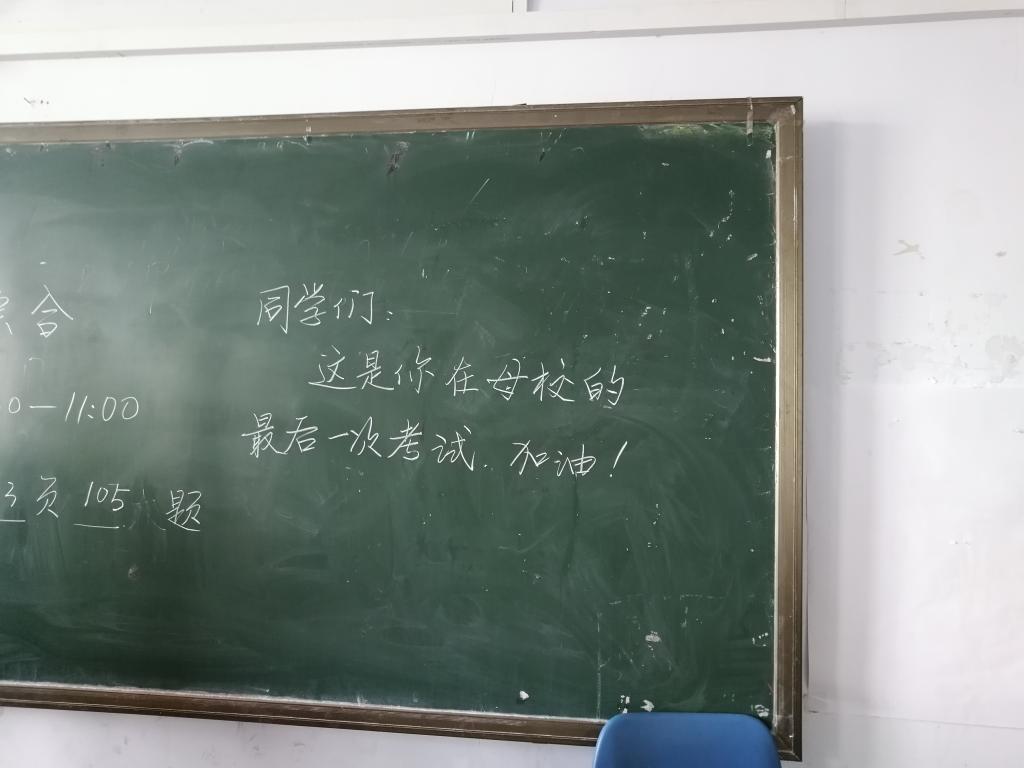 合
0—11:00
3页 105 题
同学们:
这是你在母校的
最后一次考试.加油!